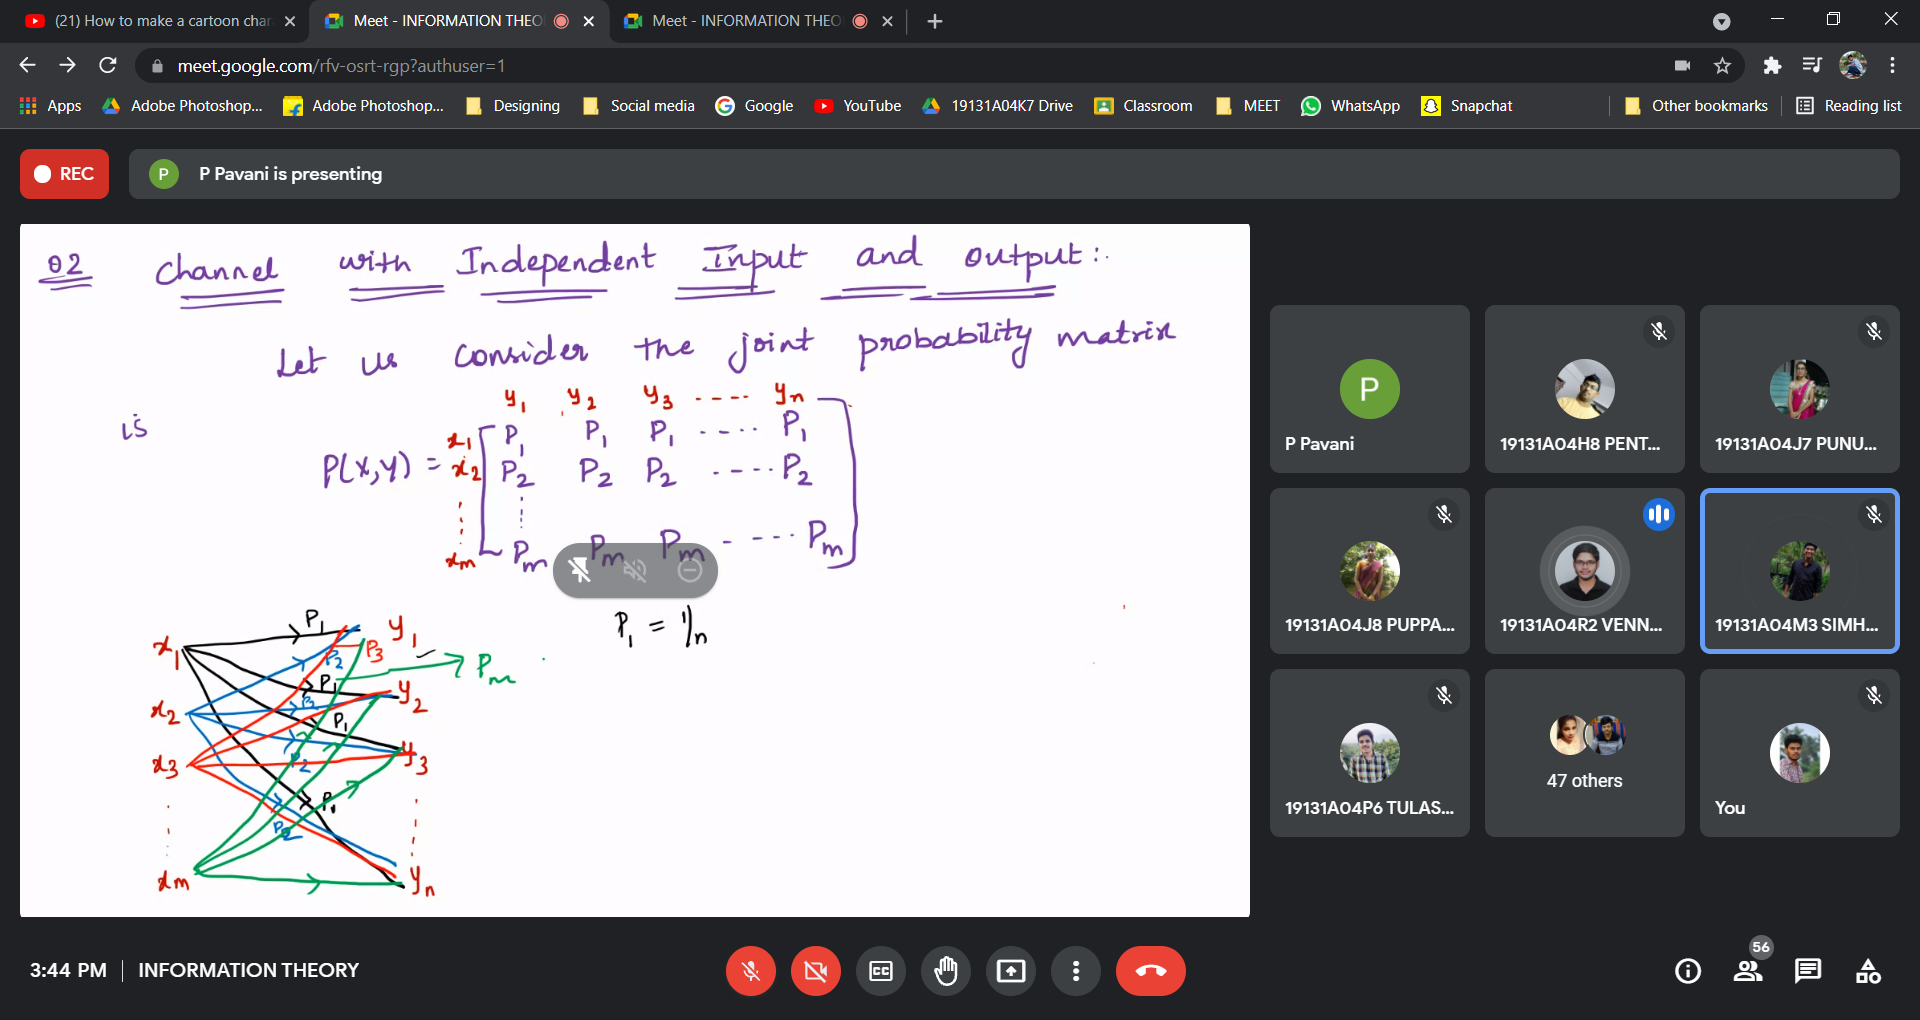 (21) How to make a cartoon char
Meet - INFORMATION THEO
Meet - INFORMATION THEO
meet.google.com/rfv-osrt-rgp?authuser=1
Apps
Adobe Photoshop...
Adobe Photoshop...
Designing
Social media
Google
YouTube
19131A04K7 Drive
Classroom
MEET
WhatsApp
Snapchat
Other bookmarks
Reading list
REC
P
P Pavani is presenting
02 Channel with Independent Input and output:
Let us consider the joint probability matrix
is
y1 y2 y3 ---- yn
x1 P1 P1 P1 ---- P1
P(X,Y) = x2 P2 P2 P2 ---- P2
xm Pm Pm Pm ----- Pm
P1 = 1/n
x1 P1 y1
P2 P3
Pm
P1 y2
x2
P1
x3 P2 y3
P1
P2
xm yn
P
P Pavani
19131A04H8 PENT...
19131A04J7 PUNU...
19131A04J8 PUPPA...
19131A04R2 VENN...
19131A04M3 SIMH...
19131A04P6 TULAS...
47 others
You
3:44 PM
INFORMATION THEORY
CC
56